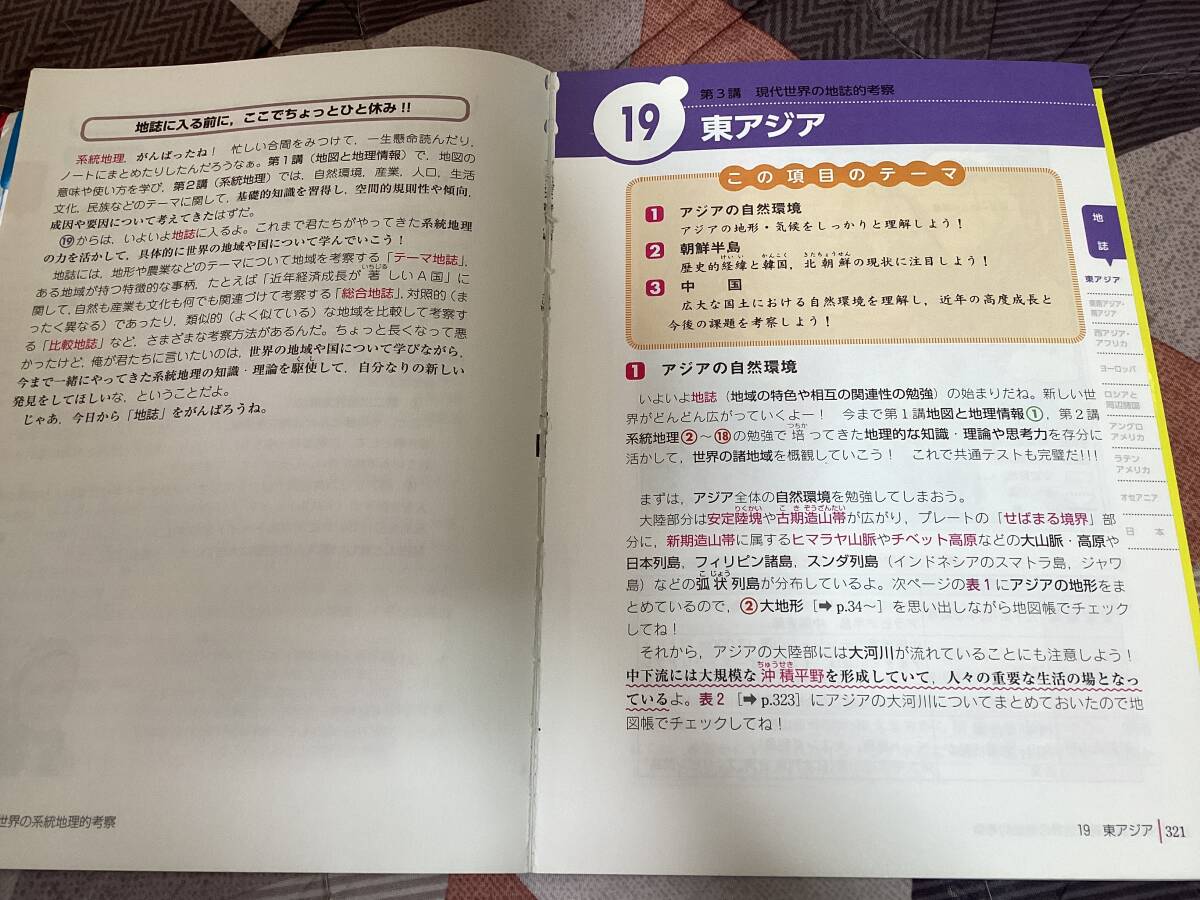 地誌に入る前に，ここでちょっとひと休み!!
系統地理，がんばったね！ 忙しい合間をみつけて，一生懸命読んだり，
ノートにまとめたりしたんだろうなぁ。第1講（地図と地理情報）で，地図の
意味や使い方を学び，第2講（系統地理）では，自然環境，産業，人口，生活
文化，民族などのテーマに関して，基礎的知識を習得し，空間的規則性や傾向，
成因や要因について考えてきたはずだ。
⑲からは，いよいよ地誌に入るよ。これまで君たちがやってきた系統地理
の力を活かして，具体的に世界の地域や国について学んでいこう！
地誌には，地形や農業などのテーマについて地域を考察する「テーマ地誌」，
ある地域が持つ特徴的な事柄，たとえば「近年経済成長が著しいA国」に
いちじる
関して，自然も産業も文化も何でも関連づけて考察する「総合地誌」，対照的（ま
ったく異なる）であったり，類似的（よく似ている）な地域を比較して考察す
る「比較地誌」など，さまざまな考察方法があるんだ。ちょっと長くなって悪
かったけど，俺が君たちに言いたいのは，世界の地域や国について学びながら，
今まで一緒にやってきた系統地理の知識・理論を駆使して，自分なりの新しい
くし
発見をしてほしいな，ということだよ。
じゃあ，今日から「地誌」をがんばろうね。
世界の系統地理的考察
第3講 現代世界の地誌的考察
19 東アジア
この項目のテーマ
1 アジアの自然環境
アジアの地形・気候をしっかりと理解しよう！
2 朝鮮半島
けいい かんこく きたちょうせん
歴史的経緯と韓国，北朝鮮の現状に注目しよう！
3 中 国
広大な国土における自然環境を理解し，近年の高度成長と
今後の課題を考察しよう！
1 アジアの自然環境
いよいよ地誌（地域の特色や相互の関連性の勉強）の始まりだね。新しい世
界がどんどん広がっていくよー！ 今まで第1講地図と地理情報①，第2講
つちか
系統地理②～⑱の勉強で培ってきた地理的な知識・理論や思考力を存分に
活かして，世界の諸地域を概観していこう！ これで共通テストも完璧だ!!!
まずは，アジア全体の自然環境を勉強してしまおう。
りくかい こきぞうざんたい
大陸部分は安定陸塊や古期造山帯が広がり，プレートの「せばまる境界」部
分に，新期造山帯に属するヒマラヤ山脈やチベット高原などの大山脈・高原や
日本列島，フィリピン諸島，スンダ列島（インドネシアのスマトラ島，ジャワ
こじょう
島）などの弧状列島が分布しているよ。次ページの表1にアジアの地形をま
とめているので，②大地形［➡p.34～］を思い出しながら地図帳でチェック
してね！
それから，アジアの大陸部には大河川が流れていることにも注意しよう！
ちゅうせき
中下流には大規模な沖積平野を形成していて，人々の重要な生活の場となっ
ているよ。表2［➡p.323］にアジアの大河川についてまとめておいたので地
図帳でチェックしてね！
地
誌
東アジア
東南アジア・
南アジア
西アジア・
アフリカ
ヨーロッパ
ロシアと
周辺諸国
アングロ
アメリカ
ラテン
アメリカ
オセアニア
日 本
19 東アジア 321